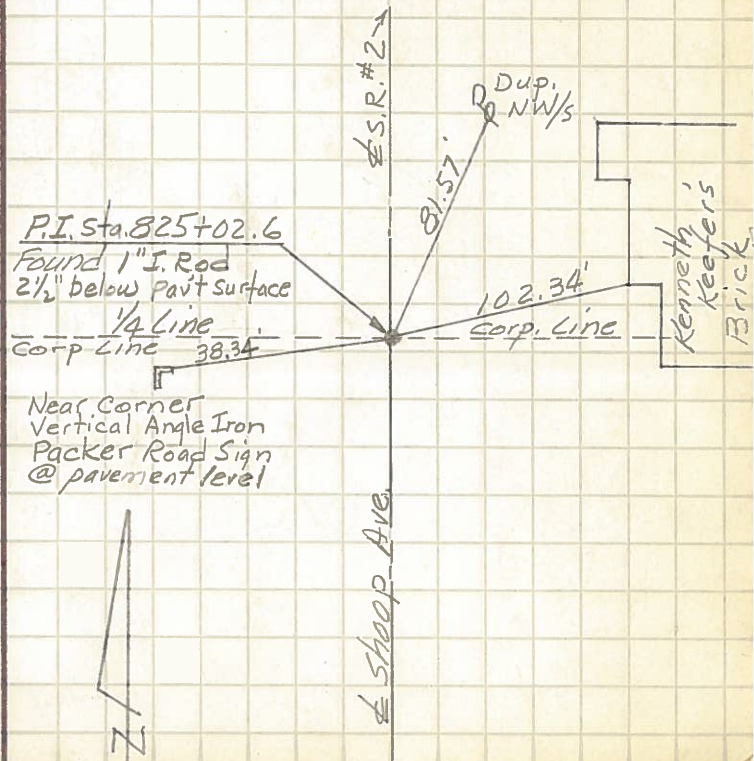 ℄ S.R. #2 →
Dup.
NW/s
81.57'
P.I. Sta. 825+02.6
Found 1" I. Rod
2½" below pav't surface
¼ Line
Corp Line
38.34'
102.34'
Corp. Line
Kenneth
Keefer's
Brick
Near Corner
Vertical Angle Iron
Packer Road Sign
@ pavement level
℄ Shoop Ave.
N